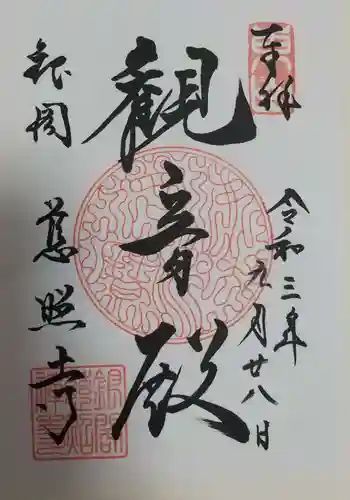 奉拝
令和三年
九月廿八日
観音殿
銀閣
慈照寺